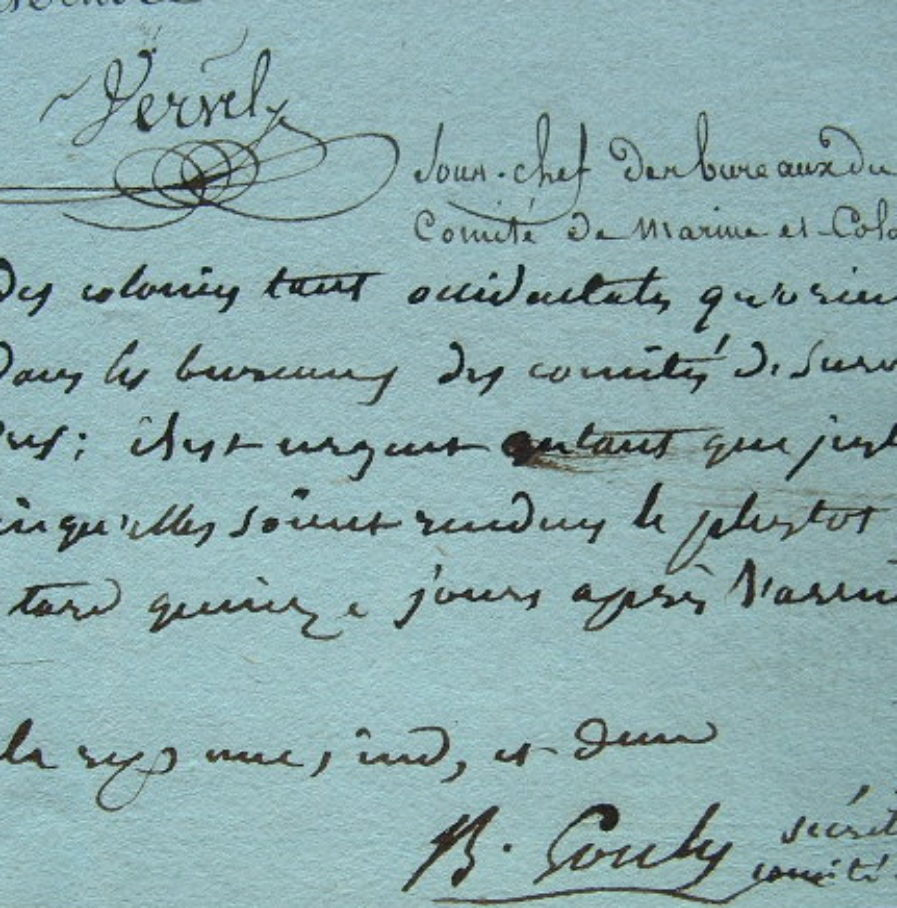 Vervel
Sous-chef des bureaux du
Comité de Marine et Colo
des colonies tant occidentales qu'orien
dans les bureaux des comités de Surv
il est urgent autant que just
qu'elles soient rendues le plustot
tard quinze jours après l'arriv
la rep une, ind, et dem
B. Gouly secrét
comité